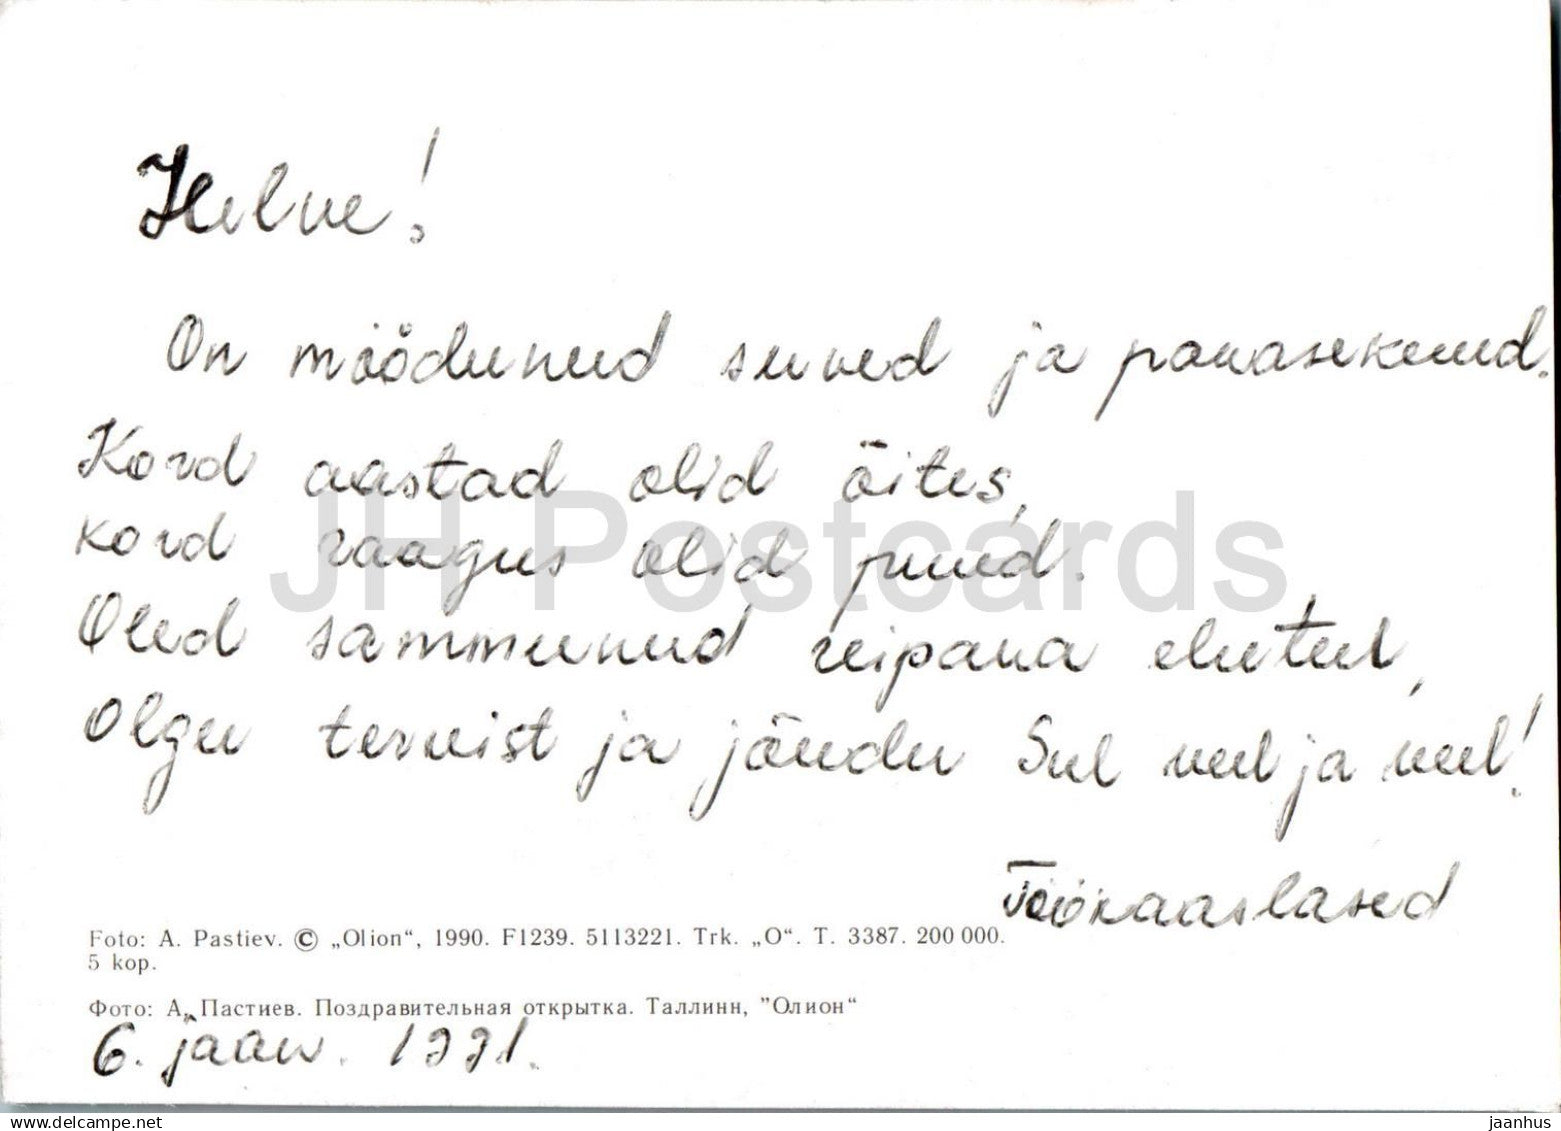 Helve!
On möödunud suved ja pawasekuud.
Kord aastad olid õites,
kord raagus olid puud.
Oled sammunud reipana eluteel,
Olgu tervist ja jõudu Sul veel ja veel!
Töökaaslased
Foto: A. Pastiev. © „Olion“, 1990. F1239. 5113221. Trk. „O“. T. 3387. 200 000.
5 kop.
Фото: А. Пастиев. Поздравительная открытка. Таллинн, ”Олион“
6. jaan. 1991.
JH Postcards
delcampe.net
jaanhus